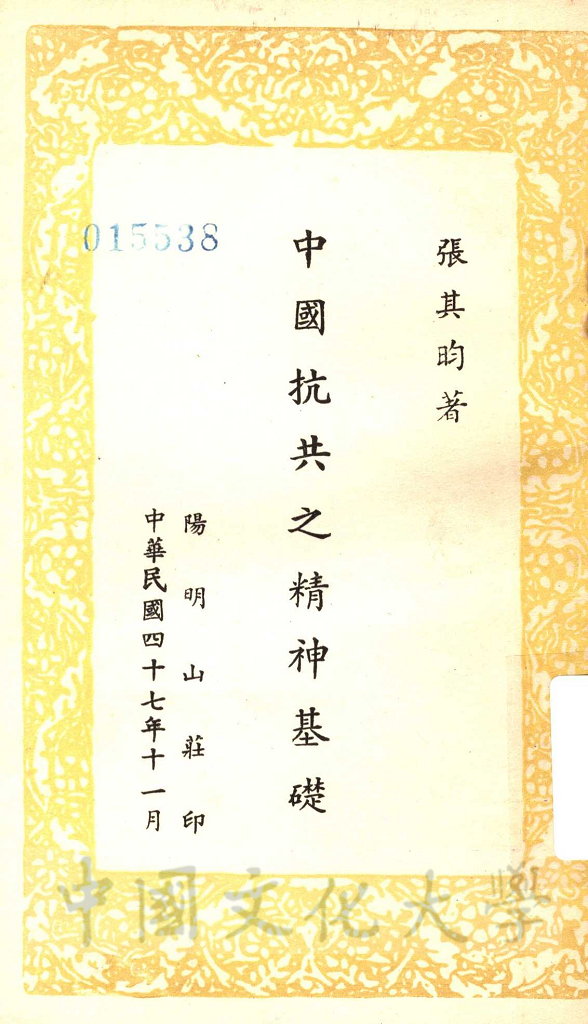 張其昀著
中國抗共之精神基礎
陽明山莊印
中華民國四十七年十一月
015538
中國文化大學